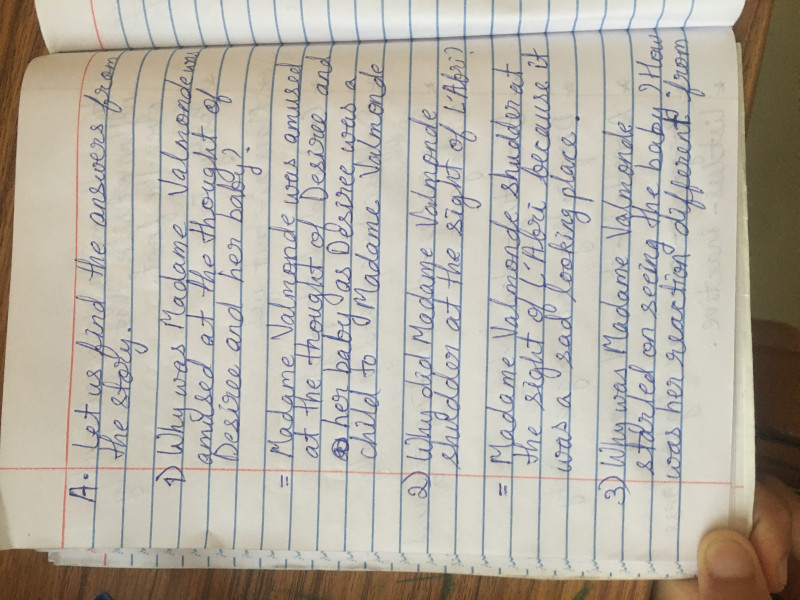 A. Let us find the answers from
the story.
1) Why was Madame Valmonde was
amused at the thought of
Desiree and her baby?
= Madame Valmonde was amused
at the thought of Desiree and
her baby as Desiree was a
child to Madame Valmonde
2) Why did Madame Valmonde
shudder at the sight of L'Abri?
= Madame Valmonde shudder at
the sight of L'Abri because it
was a sad looking place.
3) Why was Madame Valmonde
startled on seeing the baby? How
was her reaction different from